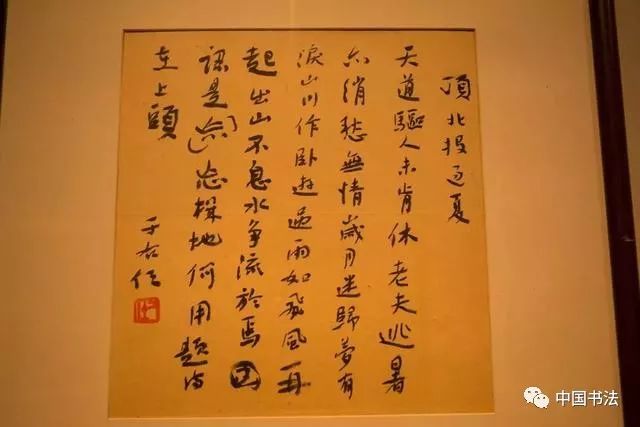 顶北投逭夏
天道驱人未肯休老夫逃暑
六绡愁無情歲月迷歸夢有
淚山川作卧遊過雨如飛風再
起出山不息水争流於焉
認是忘機地何用題
在上頭
于右任
中国书法